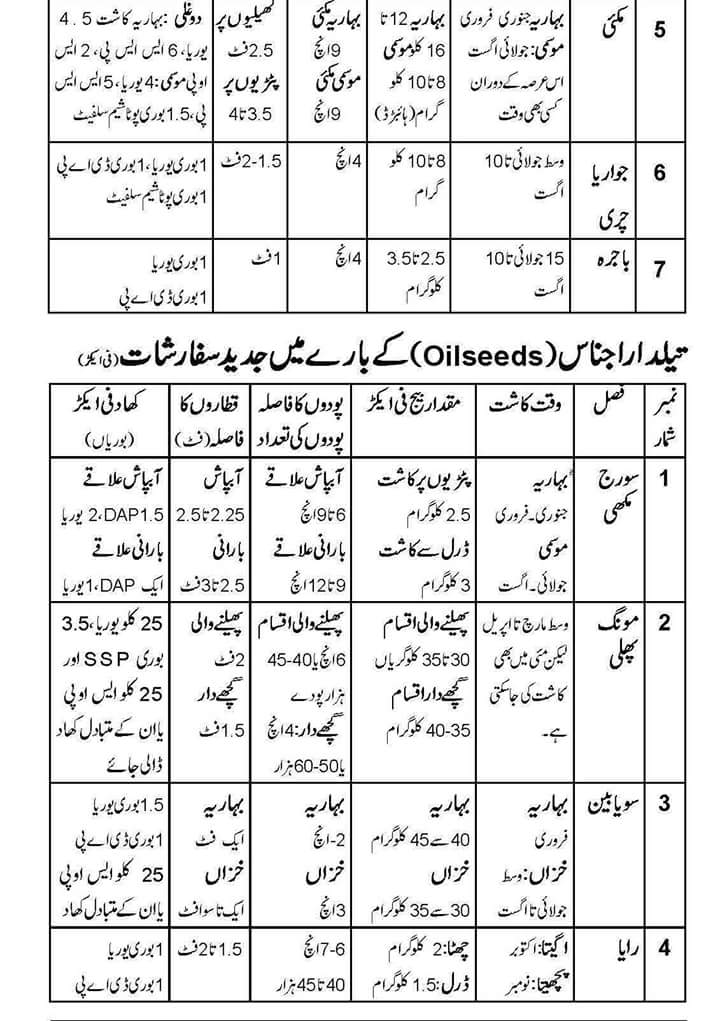 5
مکئی
بہاریہ جنوری فروری
موسمی: جولائی اگست
اس عرصہ کے دوران
کسی بھی وقت
بہاریہ 12 تا
16 کلو موسمی
8 تا 10 کلو
گرام (ہائبرڈ)
بہاریہ مکئی
9 انچ
موسمی مکئی
9 انچ
کھیلیوں پر
2.5 فٹ
پٹڑیوں پر
3.5 تا 4
دوغلی: بہاریہ کاشت 4.5
یوریا، 6 ایس ایس پی، 2 ایس
او پی موسمی: 4 یوریا، 5 ایس ایس
پی، 1.5 بوری پوٹاشیم سلفیٹ
6
جوار یا
چری
وسط جولائی تا 10
اگست
8 تا 10 کلو
گرام
4 انچ
1.5-2 فٹ
1 بوری یوریا، 1 بوری ڈی اے پی
1 بوری پوٹاشیم سلفیٹ
7
باجرہ
15 جولائی تا 10
اگست
2.5 تا 3.5
کلوگرام
4 انچ
1 فٹ
1 بوری یوریا
1 بوری ڈی اے پی
تیلدار اجناس (Oilseeds) کے بارے میں جدید سفارشات (فی ایکڑ)
نمبر
شمار
فصل
وقت کاشت
مقدار بیج فی ایکڑ
پودوں کا فاصلہ
پودوں کی تعداد
قطاروں کا
فاصلہ (فٹ)
کھاد فی ایکڑ
(بوریاں)
1
سورج
مکھی
بہاریہ
جنوری۔فروری
موسمی
جولائی۔اگست
پٹڑیوں پر کاشت
2.5 کلوگرام
ڈرل سے کاشت
3 کلوگرام
آبپاش علاقے
6 تا 9 انچ
بارانی علاقے
9 تا 12 انچ
آبپاش
2.25 تا 2.5
بارانی
2.5 تا 3 فٹ
آبپاش علاقے
1.5 DAP، 2 یوریا
بارانی علاقے
ایک DAP، 1 یوریا
2
مونگ
پھلی
وسط مارچ تا اپریل
لیکن مئی میں بھی
کاشت کی جاسکتی
ہے۔
پھیلنے والی اقسام
30 تا 35 کلو گریاں
گچھے دار اقسام
35-40 کلوگرام
پھیلنے والی اقسام
6 انچ یا 40-45
ہزار پودے
گچھے دار: 4 انچ
یا 50-60 ہزار
پھیلنے والی
2 فٹ
گچھے دار
1.5 فٹ
25 کلو یوریا، 3.5
بوری SSP اور
25 کلو ایس او پی
یا ان کے متبادل کھاد
ڈالی جائے
3
سویابین
بہاریہ
فروری
خزاں: وسط
جولائی تا اگست
بہاریہ
40 سے 45 کلوگرام
خزاں
30 سے 35 کلوگرام
بہاریہ
2-انچ
خزاں
3 انچ
بہاریہ
ایک فٹ
خزاں
ایک تا سوا فٹ
1.5 بوری یوریا
1 بوری ڈی اے پی
25 کلو ایس او پی
یا ان کے متبادل کھاد
4
رایا
اگیتا: اکتوبر
پچھیتا: نومبر
چھٹا: 2 کلوگرام
ڈرل: 1.5 کلوگرام
6-7 انچ
40 تا 45 ہزار
1.5 تا 2 فٹ
1 بوری یوریا
1 بوری ڈی اے پی